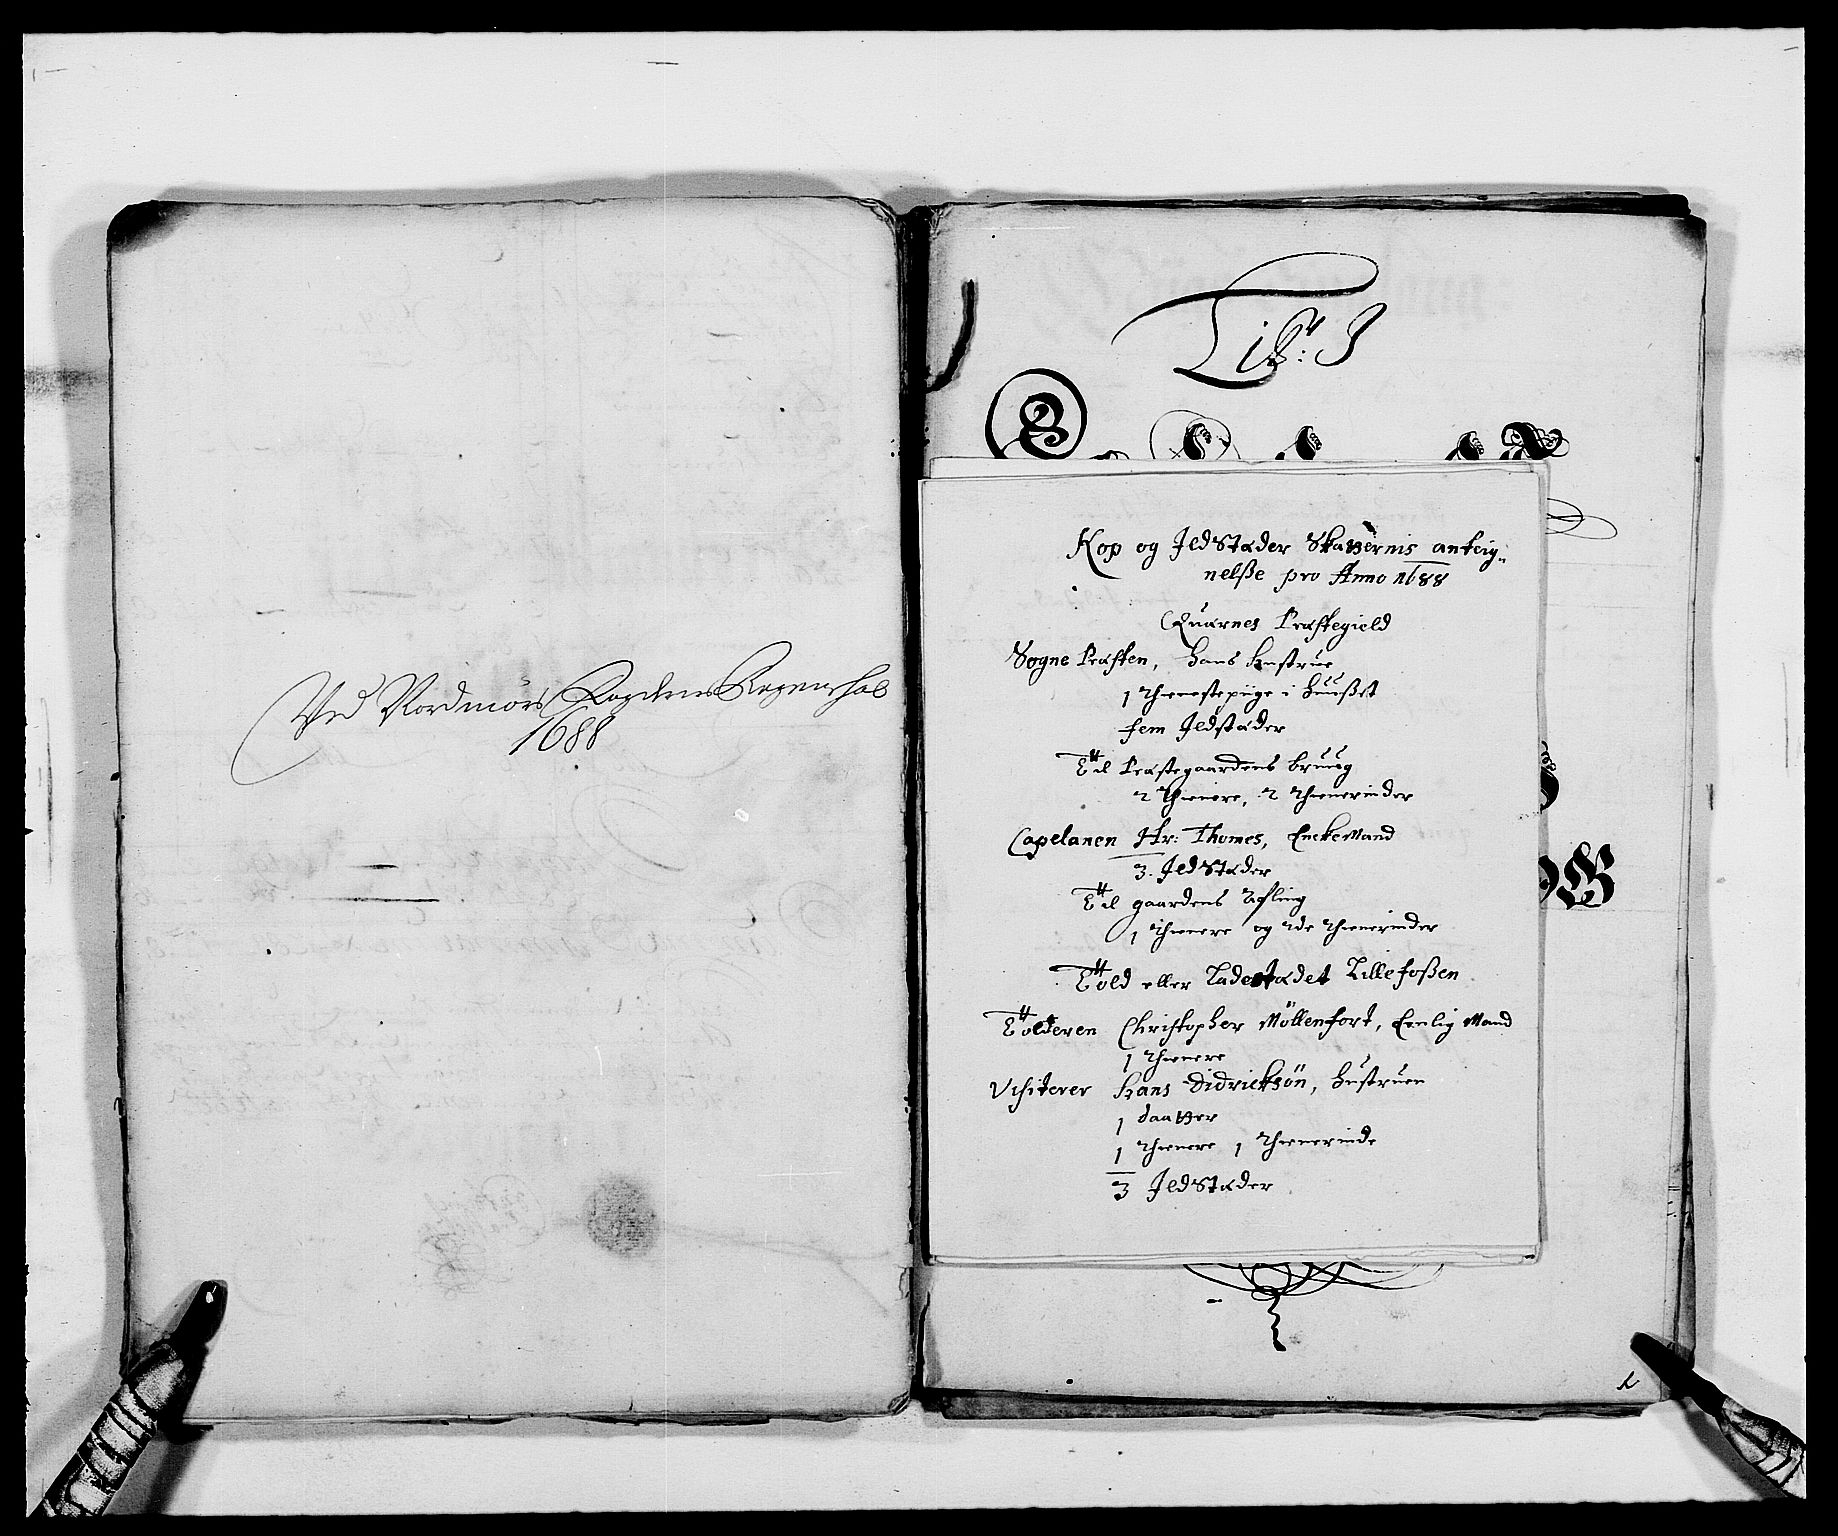 Ved Nordmörs Fogderies Regenschab
1688
Lit: J
Kop og JldStæder Skatternis anteig-
nelsse pro Anno 1688
Quærnes Præstegield
Sogne Præsten, hans hustrue
1 thienestepiige i huusset
fem Jldstæder
Til Præstegaardens bruug
2 thienere, 2 thienerinder
Capelanen Hr: Thomes, EnckeMand
3. JldStæder
Til gaardens Afling
1 thienere og 2de thienerinder
Told eller Ladestædet Lillefossen
Tolderen Christopher Möllenfort, Eenlig Mand
1 thienere
Visiterer Hans Didricksön, hustruen
1 daatter
1 thienere 1 thienerinde
3 JldStæder